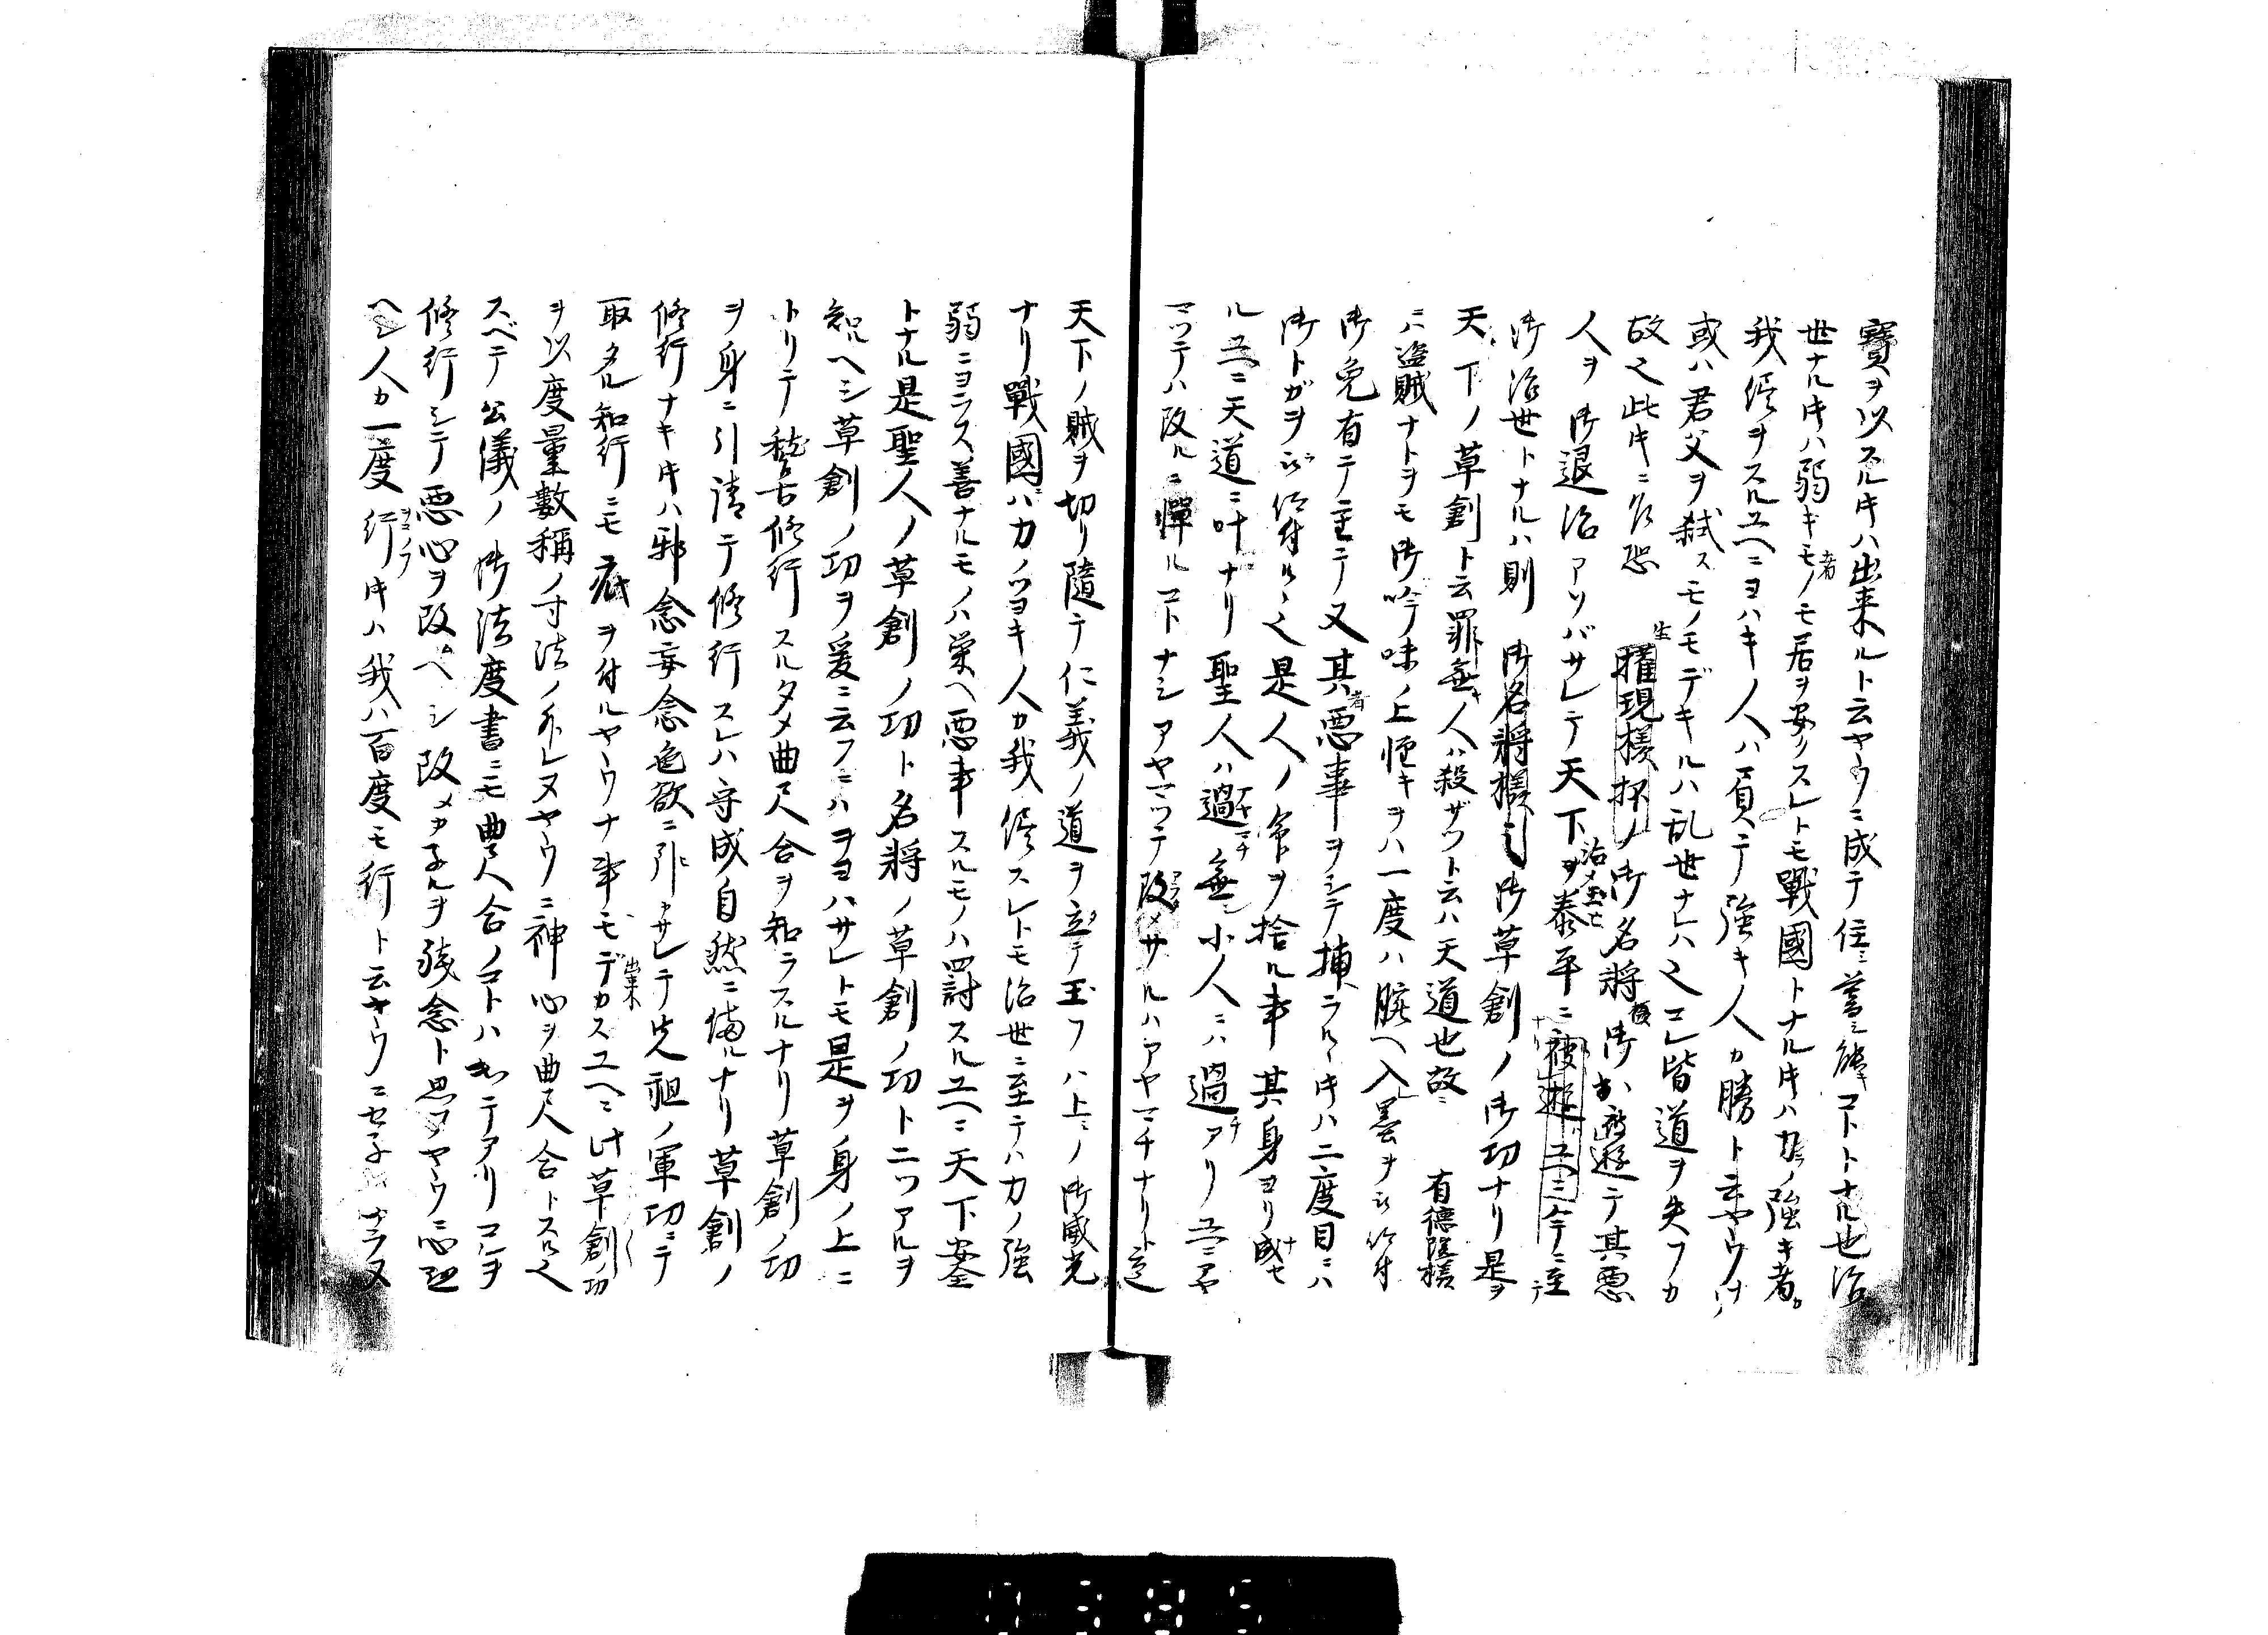 寳ヲ以スルキハ出来ルト云ヤウニ成テ住ミ蓄ミ難キコトトナル也治
世ナルキハ弱キモノモ居ヲ安クスレトモ戰國トナルキハ力ノ強キ者カ
我侭ヲスルユヘニヨハキ人ハ負テ強キ人カ勝ト云ヤウナ
或ハ君父ヲ弑スモノモデキルハ乱世ナレハ之コレ皆道ヲ失フカ
故之此キニ乃恐 權現様 ノ御名将 御出被遊テ其悪
人ヲ御退治アソバサレテ天下ヲ泰平ニ被遊ユヘニ今ニ至テ
御治世トナルハ則 御名將様 御草創ノ御功ナリ是ヲ
天下ノ草創ト云罪無キ人ハ殺ザットハ天道也故ニ 有徳院様
ニハ盗賊ナトヲモ御吟味ノ上軽キヲハ一度ハ腕ヘ入墨ヲ被仰付
御免有テ至テ又其悪事ヲシテ捕ラルヽキハ二度目ニハ
御トガヲ被仰付ルヽ之是人ノ命ヲ捨ル事其身ヨリ成セ
ルユヘニ天道ニ叶ナリ聖人ハ過無シ小人ニハ過チアリユヘニアヤ
マツテハ改ルニ憚ルコトナシアヤマツテ改メサルハアヤマチナリト云
天下ノ賊ヲ切リ隨テ仁義ノ道ヲ立テ玉フハ上ミノ御威光
ナリ戰國ハ力ノツヨキ人カ我侭スレトモ治世ニ至テハ力ノ強
弱ニヨラス善ナルモノハ栄ヘ悪事スルモノハ罸スルユヘニ天下安全
トナル是聖人ノ草創ノ功ト名將ノ草創ノ功ト二ツアルヲ
知ルヘシ草創ノ功ヲ爰ニ云フニハヲヨハサレトモ是ヲ身ノ上ニ
トリテ稽古修行スルタメ曲尺合ヲ知ラスルナリ草創ノ功
ヲ身ニ引請テ修行スレハ守成自然ニ備ルナリ草創ノ
修行ナキキハ邪念妄念色欲ニ引カサレテ先祖ノ軍功ニテ
取タル知行ニモ疵ヲ付ルヤウナ事モデカスユヘニ此草創ノ功
ヲ以度量數稱ノ寸法ノ外レヌヤウニ神心ヲ曲尺合トスル之
スベテ公儀ノ御法度書ニモ曲尺合ノコトハ出テアリコレヲ
修行シテ悪心ヲ改ヘシ改メカヌルヲ残念ト思ヌヤウニ心
ヘシ人カ一度行キハ我ハ百度モ行ト云ヤウニセ子ハナラヌ